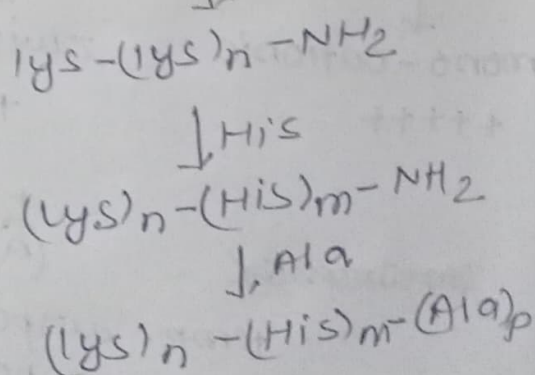 lys-(lys)n-NH2
↓ His
(Lys)n-(His)m-NH2
↓, Ala
(lys)n-(His)m-(Ala)p